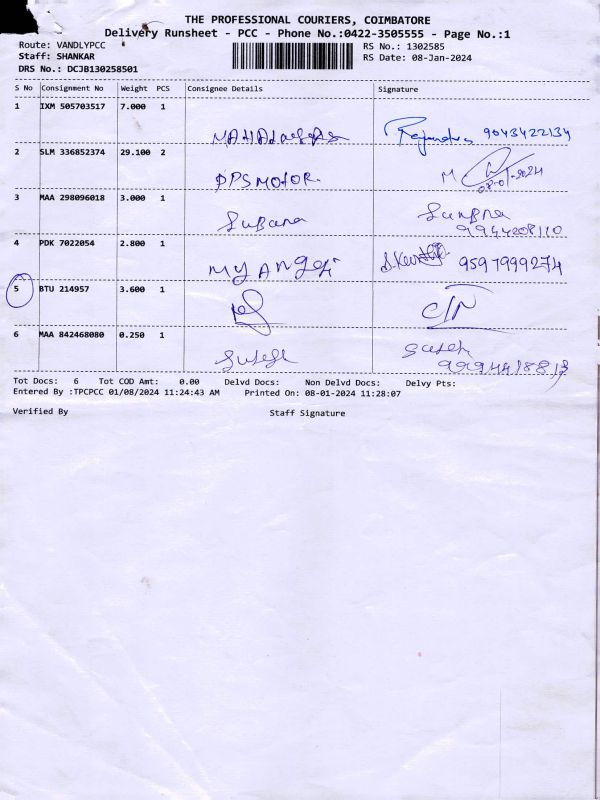 THE PROFESSIONAL COURIERS, COIMBATORE
Delivery Runsheet - PCC - Phone No.:0422-3505555 - Page No.:1
Route: VANDLYPCC RS No.: 1302585
Staff: SHANKAR RS Date: 08-Jan-2024
DRS No.: DCJB130258501
S No Consignment No Weight PCS Consignee Details Signature
1 IXM 505703517 7.000 1
9043422134
2 SLM 336852374 29.100 2
PPS MOTOR. M 08-01-2024
3 MAA 298096018 3.000 1
Subana
9944208110
4 PDK 7022054 2.800 1
9597999274
5 BTU 214957 3.600 1
6 MAA 842468080 0.250 1
Tot Docs: 6 Tot COD Amt: 0.00 Delvd Docs: Non Delvd Docs: Delvy Pts:
Entered By :TPCPCC 01/08/2024 11:24:43 AM Printed On: 08-01-2024 11:28:07
Verified By Staff Signature